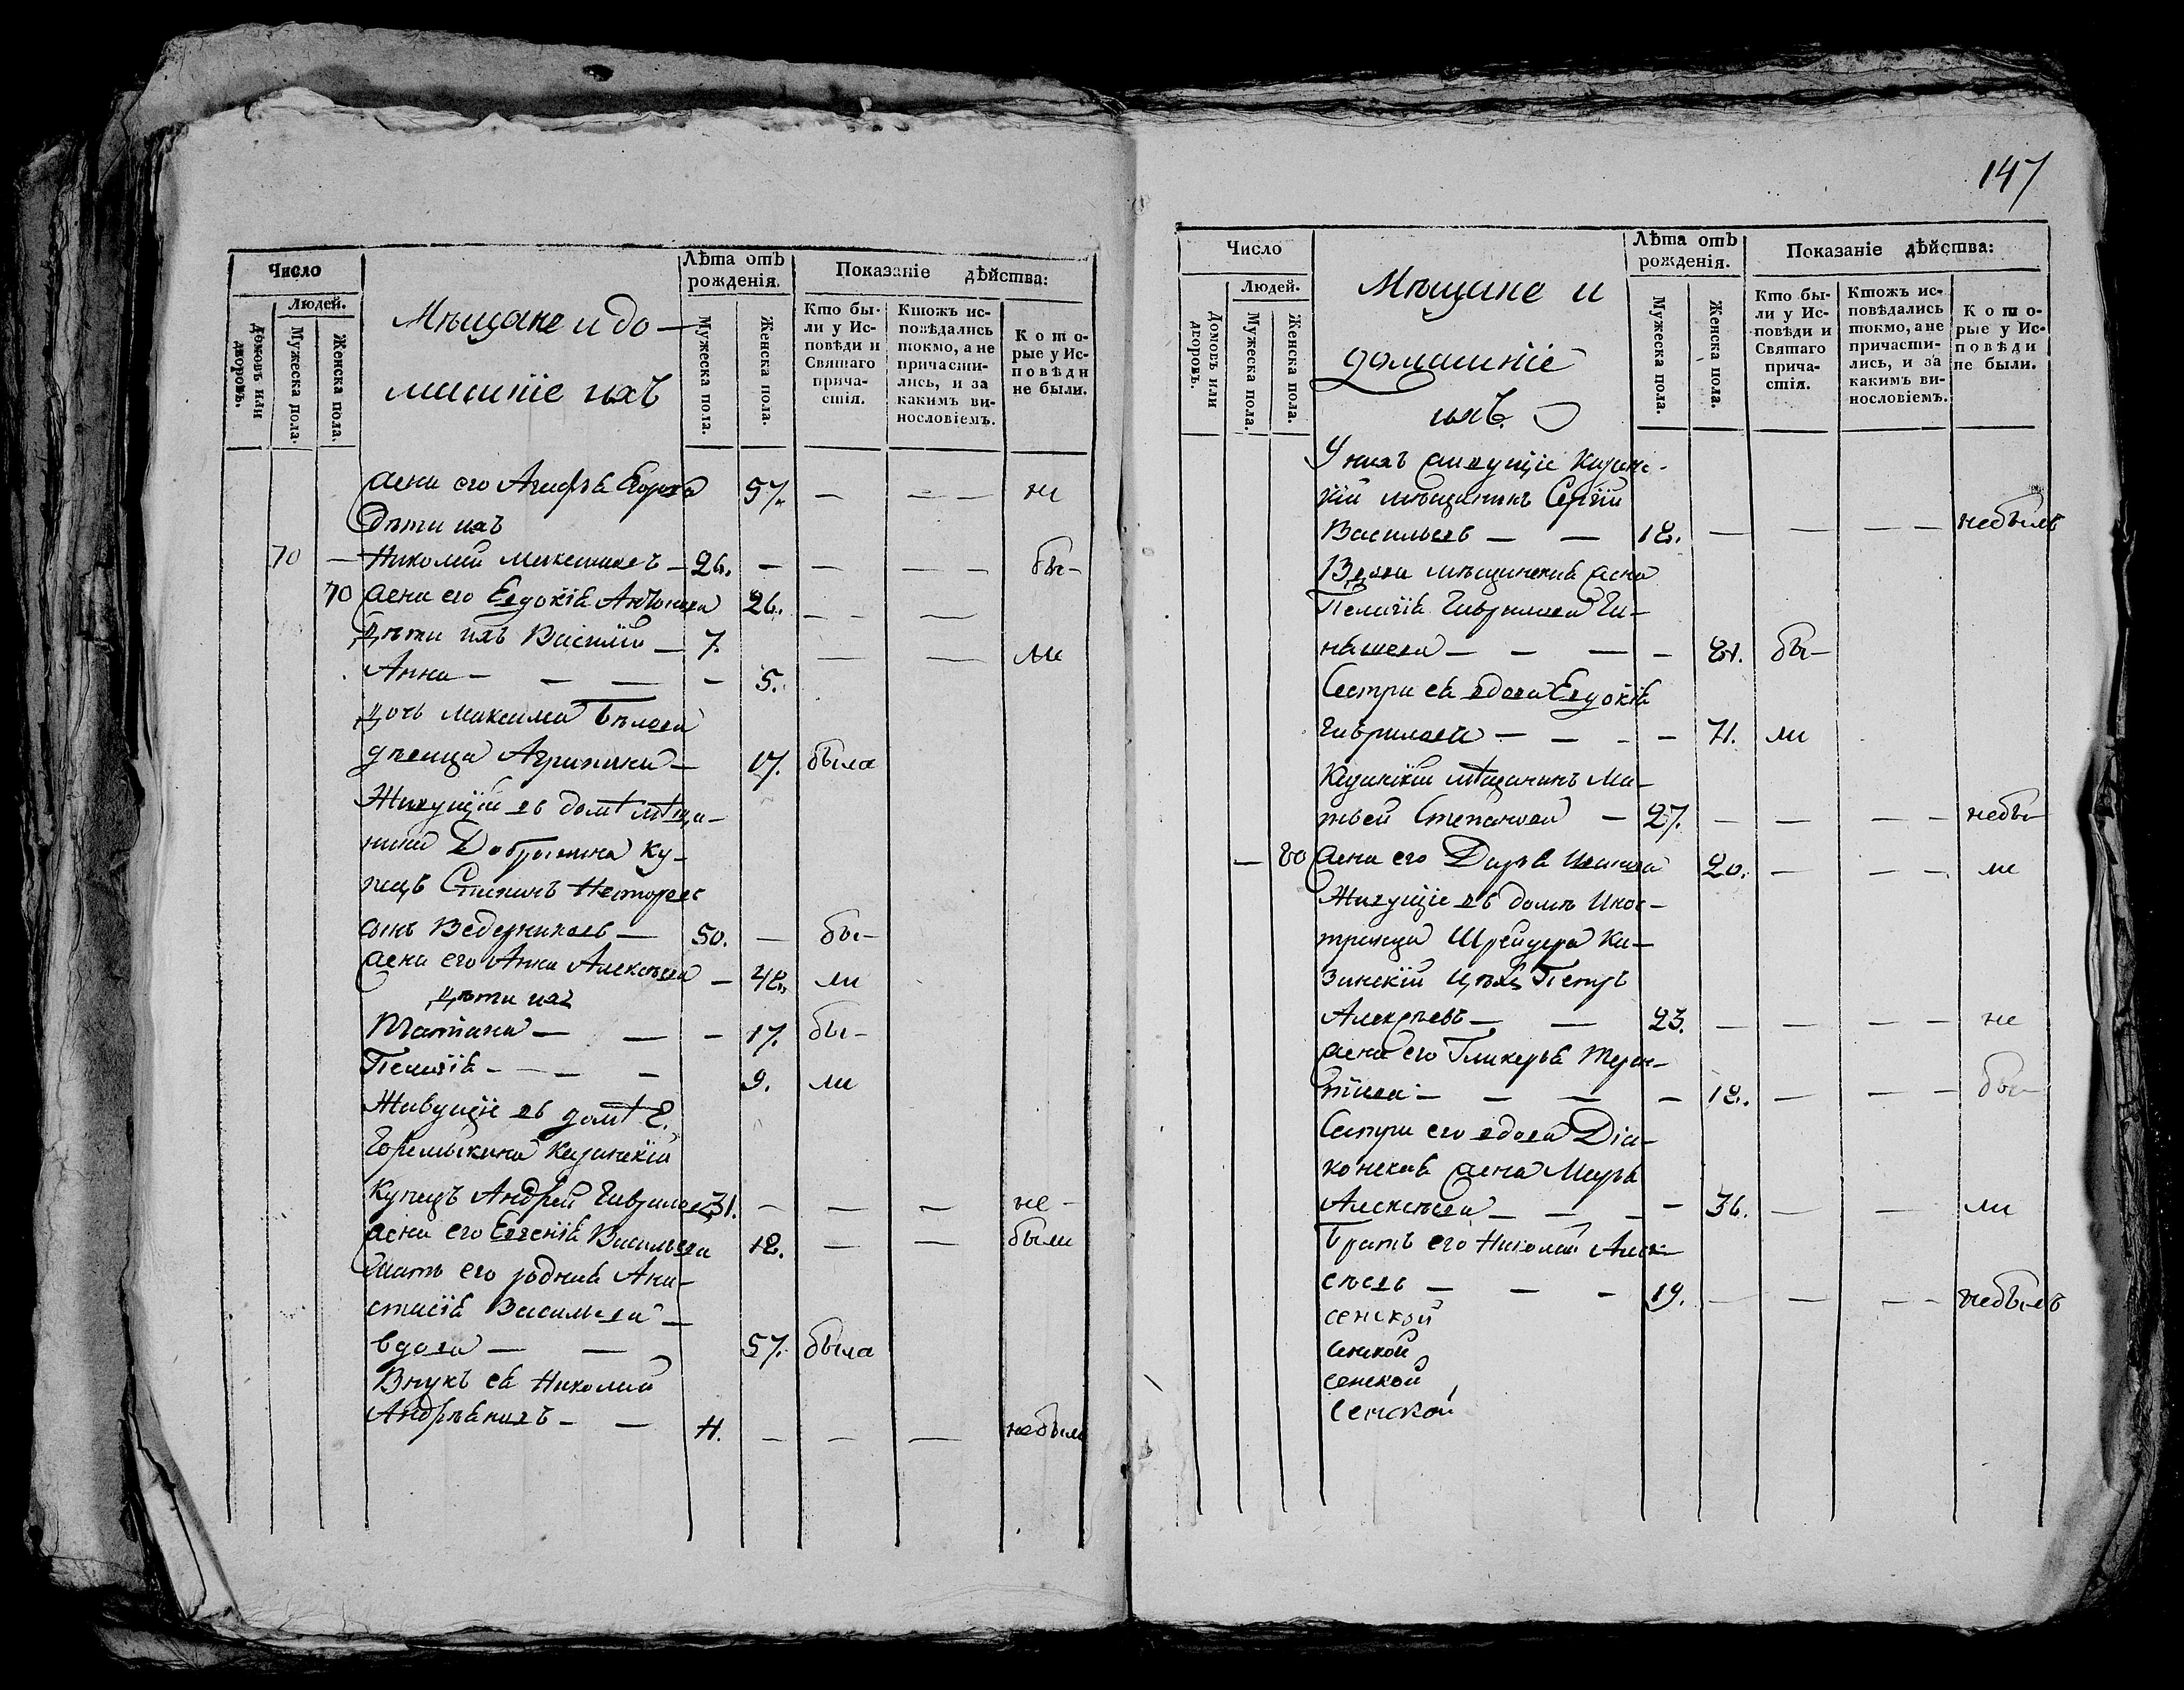 Число
Людей.
Домовъ или дворовъ.
Мужеска пола.
Женска пола.
Мѣщане и до-
машніе ихъ
Лѣта отъ рожденія.
Мужеска пола.
Женска пола.
Показаніе дѣйства:
Кто бы-
ли у Ис-
повѣди и
Святаго
прича-
стія.
Ктожъ ис-
повѣдались
токмо, а не
причасти-
лись, и за
какимъ ви-
нословіемъ.
Кото-
рые у Ис-
повѣди
не были.
жена его Агафья 57. — — — не
Дѣти ихъ
70 — Николай — 26. — — — — бы-
70 жена его Евдокія Антонова 26. — — —
Дѣти ихъ Василій — 7. — — ли
Анна — — — — 5.
дочь Максима Бѣлова
дѣвица Агрипина — 17. была
Живущіи въ домѣ мѣща-
нина Добрынина ку-
пецъ Несторовъ
сынъ Ведерниковъ — 50. — бы-
жена его Анна Алексѣева — 48. ли
Дѣти ихъ
Татіана — — — 17. бы-
Пелагія — — — 9. ли
Живущіе въ домѣ Е.
Горемыкина Казанскій
купецъ Андрей Гавриловъ 31. — — — не-
жена его Евгенія Васильева 18. — — были
Мать его родная Ана-
стасія Васильева —
вдова — — 57. была
Внукъ ея Николай
Андреяновъ — — 4. — — — небылъ
147
Число
Людей.
Домовъ или дворовъ.
Мужеска пола.
Женска пола.
Мѣщане и
домашніе
ихъ.
Лѣта отъ рожденія.
Мужеска пола.
Женска пола.
Показаніе дѣйства:
Кто бы-
ли у Ис-
повѣди и
Святаго
прича-
стія.
Ктожъ ис-
повѣдались
токмо, а не
причасти-
лись, и за
какимъ ви-
нословіемъ.
Кото-
рые у Ис-
повѣди
не были.
У нихъ живущіе Казанс-
кій мѣщанинъ Сергій
Васильевъ — — 18. — — — — небылъ
Вдова мѣщанская жена
Пелагія Гаврилова
— — — — 81. бы-
Сестра ея вдова Евдокія
Гаврилова — — — — 71. ли
Казанскій мѣщанинъ Ма-
твей Степановъ — 27. — — — — небы-
— 80 жена его Дарья Иванова 20. — — — ли
Живущіе въ домѣ Инос-
транца Шрейдера Ка-
занскій Петръ
Алексѣевъ — — 23. — — — — не
жена его Гликерья Терен-
тіева — — — — 18. — — — бы-
Сестра его вдова Діа-
конская жена Марья
Алексѣева — — — — 36. — — ли
Братъ его Николай Алек-
сѣевъ — — — 19. — — — — небылъ
сенской
сенской
сенской
сенской